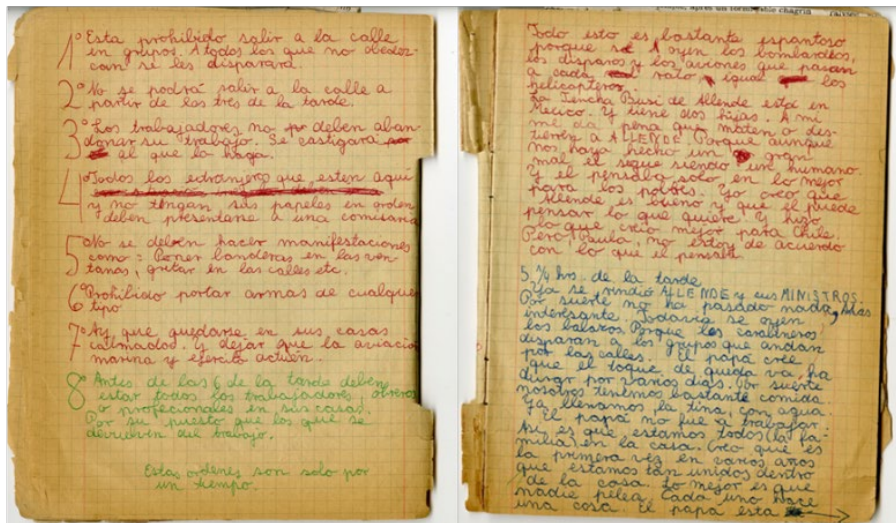 1° Esta prohibido salir a la calle
en grupos. A todos los que no obedoz-
can se les disparará.
2° No se podrá salir a la calle a
partir de las tres de la tarde.
3° Los trabajadores no deben aban-
donar su trabajo. Se castigará
al que lo haga.
4° Todos los extranjeros que esten aquí
y no tengan sus papeles en orden
deben presentarse a una comisaria
5° No se deben hacer manifestaciones
como: Poner banderas en las ven-
tanas, gritar en las calles etc.
6° Prohibido portar armas de cualquier
tipo
7° Ay que quedarse en sus casas
calmados. Y dejar que la aviación
marina y ejército actúen.
8° Antes de las 6 de la tarde deben
estar todos los trabajadores, obreros
o profecionales en sus casas.
Por su puesto que los que se
del trabajo.
Estas ordenes son solo por
un tiempo.
Todo esto es bastante espantoso
porque se oyen los bombardeos,
los disparos y los aviones que pasan
a cada rato igual los
helicopteros.
La Tencha Busi de Allende está en
Mexico. Y tiene dos hijas. A mi
me da pena que maten o des-
tierren a ALLENDE. Porque aunque
nos haya hecho un gran
mal el sigue siendo un humano.
Y el pensaba solo en lo mejor
para los pobres. Yo creo que
Allende es bueno y que el puede
pensar lo que quiere. Y hizo
lo que creio mejor para Chile.
Pero, Paula, no estoy de acuerdo
con lo que el pensaba.
5 ¼ hrs. de la tarde
Ya se rindió ALLENDE y sus MINISTROS.
Por suerte no ha pasado nada más
interesante. Todavía se oyen
los balazos. Porque los carabineros
disparan a los grupos que andan
por las calles. El papá cree
que el toque de queda va ha
durar por varios días. Por suerte
nosotros tenemos bastante comida.
Ya llenamos la tina, con agua.
El papá no fue a trabajar.
Asi es que estamos todos (la fa-
milia) en la casa. Creo que es
la primera vez en varios años
que estamos tan unidos dentro
de la casa. Lo mejor es que
nadie pelea. Cada uno hace
una cosa. El papá esta